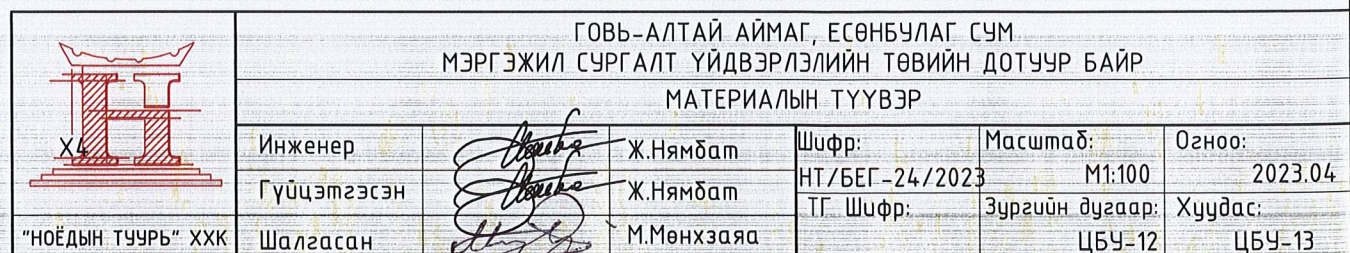 ГОВЬ-АЛТАЙ АЙМАГ, ЕСӨНБУЛАГ СУМ
МЭРГЭЖИЛ СУРГАЛТ ҮЙДВЭРЛЭЛИЙН ТӨВИЙН ДОТУУР БАЙР
МАТЕРИАЛЫН ТҮҮВЭР
Х4
"НОЁДЫН ТУУРЬ" ХХК
Инженер Ж.Нямбат
Гүйцэтгэсэн Ж.Нямбат
Шалгасан М.Мөнхзаяа
Шифр: Масштаб: Огноо:
НТ/БЕГ-24/2023 М1:100 2023.04
ТГ Шифр: Зургийн дугаар: Хуудас:
ЦБУ-12 ЦБУ-13